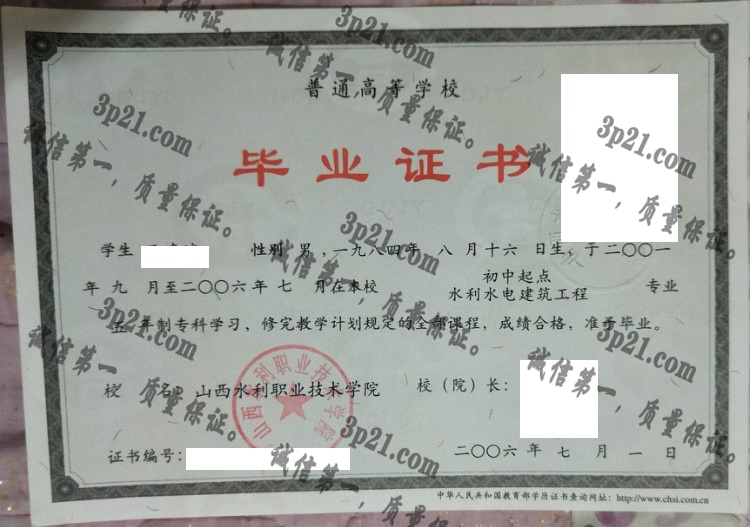 普通高等学校
毕业证书
学生 性别 男 ,一九八四年 八 月十六 日生, 于二〇〇一
年 九 月至二〇〇六年 七 月在本校 初中起点 专业
水利水电建筑工程
五 年制专科学习, 修完教学计划规定的全部课程, 成绩合格, 准予毕业。
校 名: 山西水利职业技术学院 校(院)长:
山西水利职业技术学院
证书编号: 二〇〇六 年 七 月 一 日
中华人民共和国教育部学历证书查询网址: http://www.chsi.com.cn
3p21.com
诚信第一,质量保证。
3p21.com
诚信第一,质量保证。
3p21.com
诚信第一,质量保证。
3p21.com
诚信第一,质量保证。
3p21.com
诚信第一,质量保证。
3p21.com
诚信第一,质量保证。
3p21.com
诚信第一,质量保证。